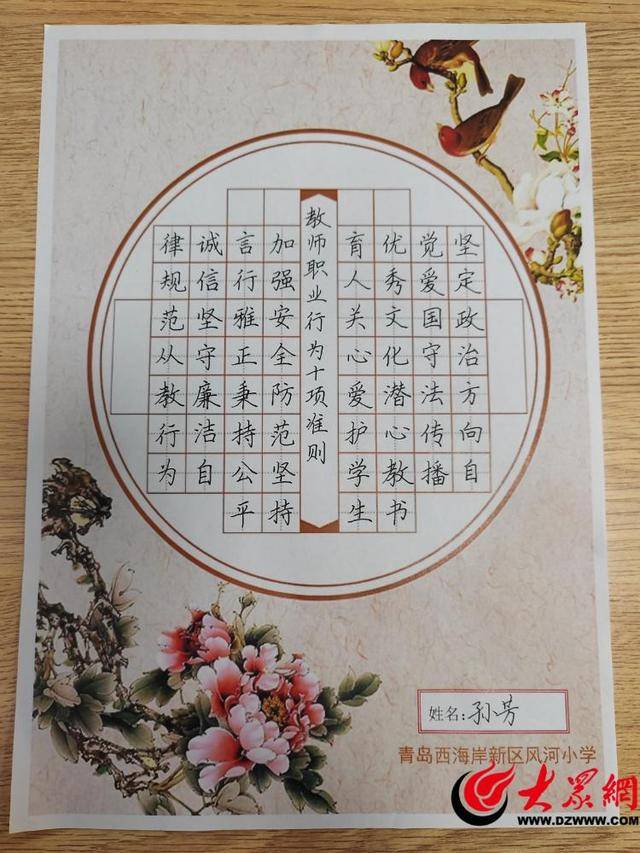 坚定政治方向自
觉爱国守法传播
优秀文化潜心教书
育人关心爱护学生
教师职业行为十项准则
加强安全防范坚持
言行雅正秉持公平
诚信坚守廉洁自
律规范从教行为
姓名:孙芳
青岛西海岸新区风河小学
大众網
WWW.DZWWW.COM